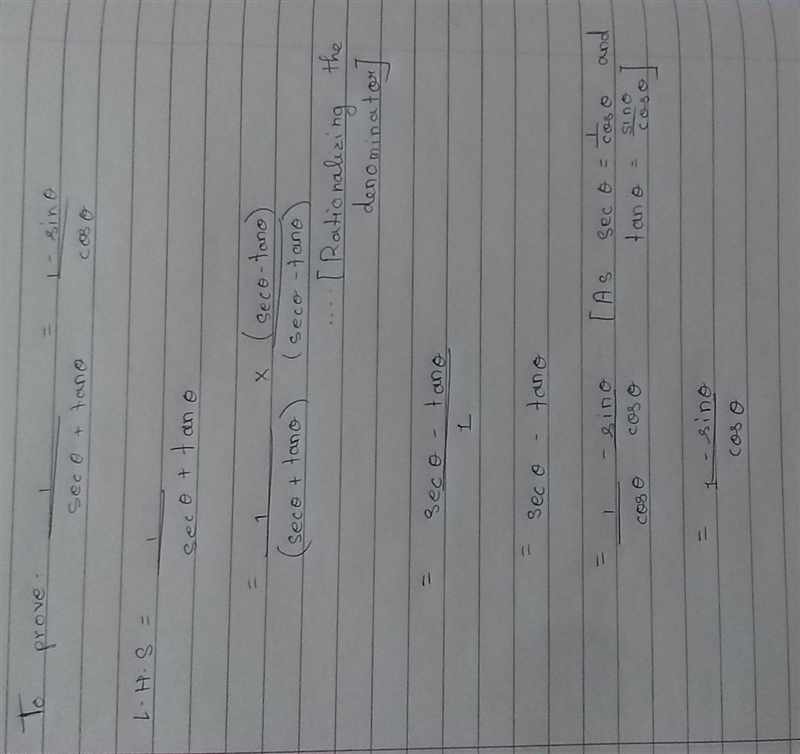 To prove: 1 / sec θ + tan θ = 1 - sin θ / cos θ
L.H.S = 1 / sec θ + tan θ
= 1 / (sec θ + tan θ) × (sec θ - tan θ) / (sec θ - tan θ)
.... [Rationalizing the
denominator]
= sec θ - tan θ / 1
= sec θ - tan θ
= 1 / cos θ - sin θ / cos θ [As sec θ = 1 / cos θ and
tan θ = sin θ / cos θ]
= 1 - sin θ / cos θ